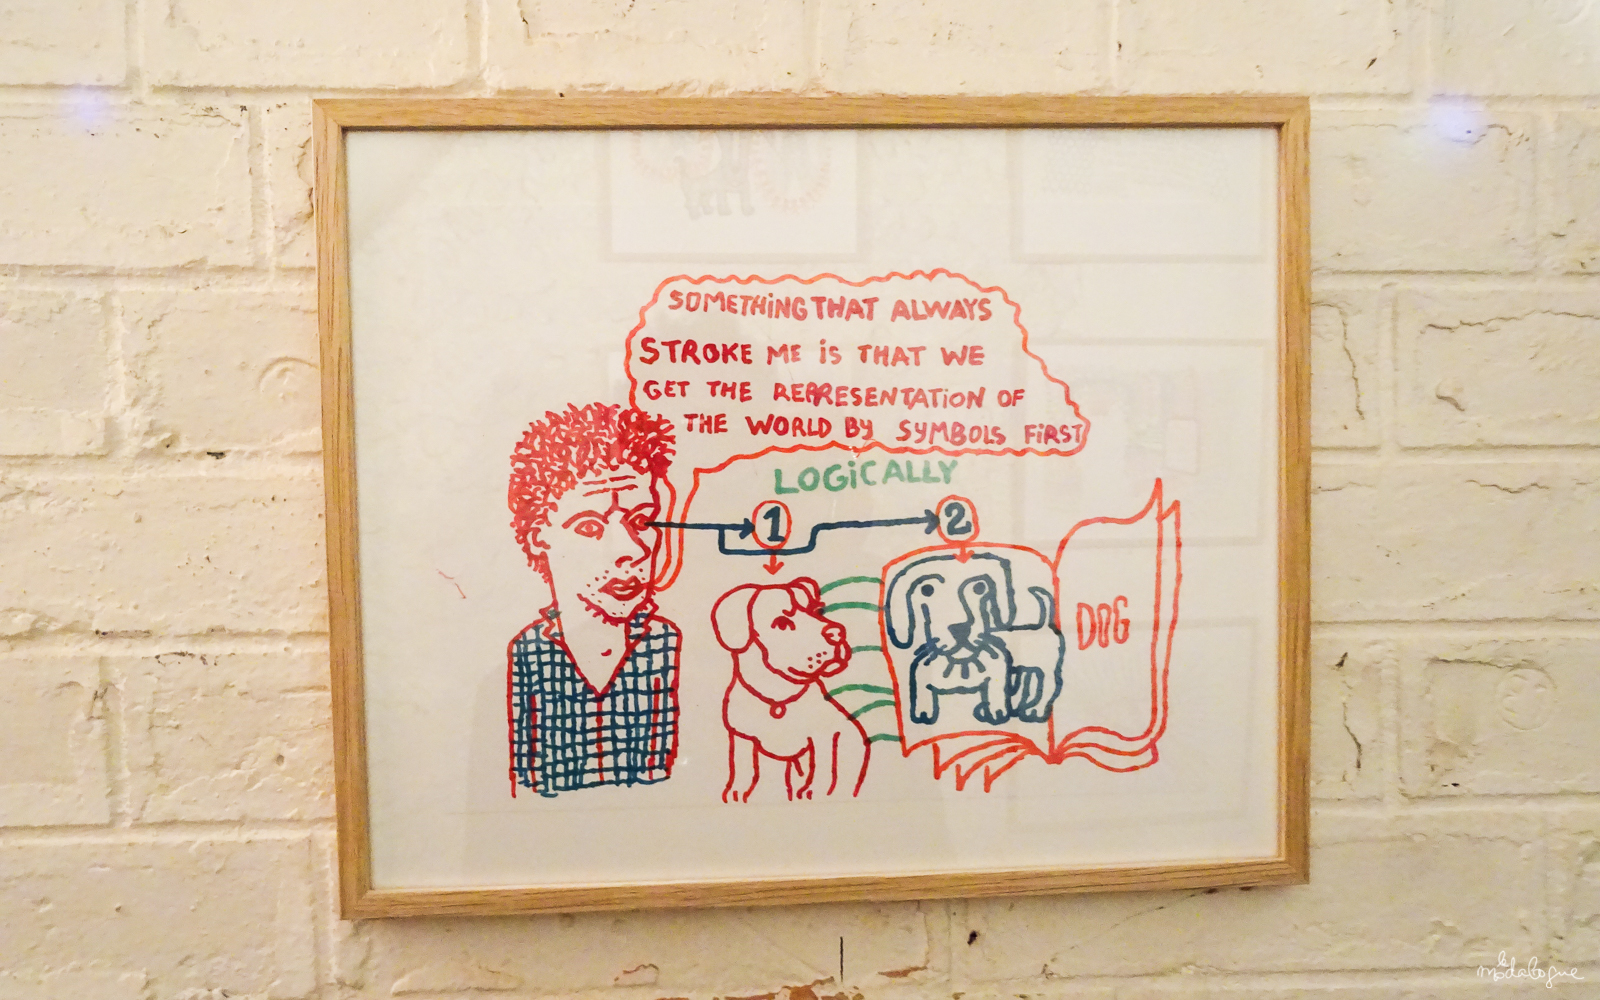 SOMETHING THAT ALWAYS
STROKE ME iS THAT WE
GET THE REPRESENTATiON OF
THE WORLD BY SYMBOLS FiRST
LOGiCALLY
1
2
DOG
le modalogue